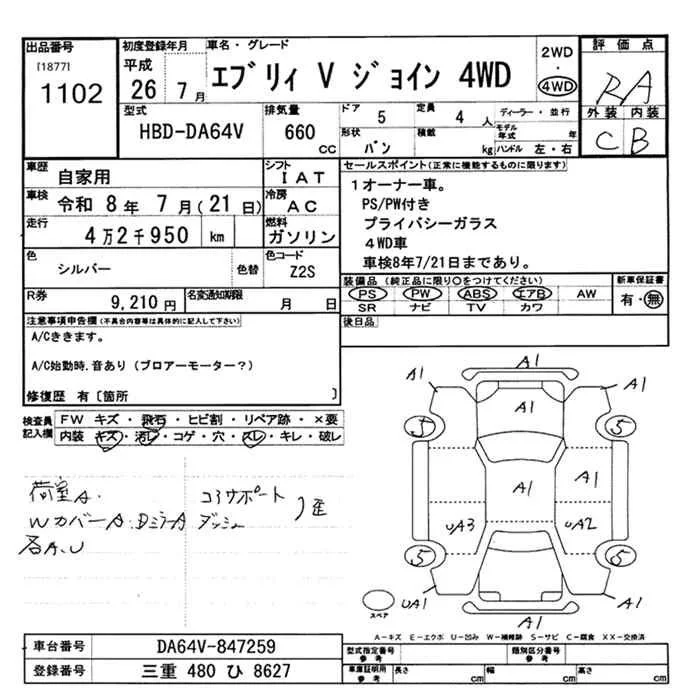 出品番号
[1877]
1102
初度登録年月
平成
26 7 月
車名・グレード
エブリィ V ジョイン 4WD
2WD
・
4WD
評価点
RA
外装 内装
C B
型式
HBD-DA64V
排気量
660 cc
ドア 5
定員 4 人
形状 バン
積載 kg
ディーラー・並行
モデル年式 年
ハンドル 左・右
車歴 自家用
シフト IAT
車検 令和 8 年 7 月(21 日)
冷房 AC
走行 4万2千950 km
燃料 ガソリン
色 シルバー 色替
色コード Z2S
R券 9,210 円
名変通知期限 月 日
セールスポイント(正常に機能するものに限ります)
1オーナー車。
PS/PW付き
プライバシーガラス
4WD車
車検8年7/21日まであり。
装備品(純正品に限り○をつけてください)
PS PW ABS エアB AW
SR ナビ TV カワ
新車保証書
有・無
後日品
注意事項申告欄(不具合内容等は具体的に記入して下さい)
A/Cききます。
A/C始動時.音あり(ブロアーモーター?)
修復歴 有[箇所 ]
検査員記入欄
FW キズ・飛石・ヒビ割・リペア跡・×要
内装 キズ・汚レ・コゲ・穴・スレ・キレ・破レ
荷室A.
WカバーA.DミラーA
各A.U
コアサポート
ダッシュ
A1
A1 A1
A1
5 5
A1 A1
UA3 UA2
5 5
UA1 A1
A1
スペア
A-キズ E-エクボ U-凹み W-補修跡 S-サビ C-腐食 XX-交換済
車台番号 DA64V-847259
登録番号 三重 480 ひ 8627
型式指定番号 参考
類別区分番号 参考
車庫証明用 参考
長さ cm 幅 cm 高さ cm